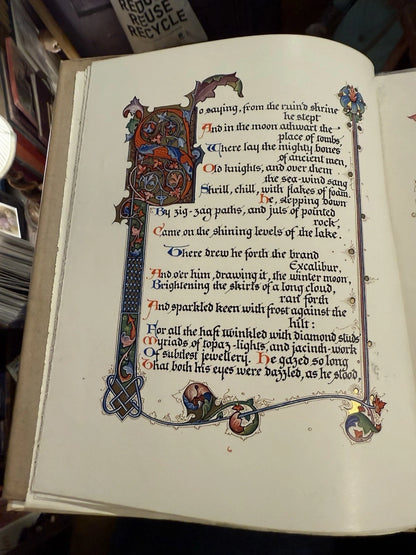 REDU
REUSE
RECYCLE
So saying, from the ruin'd shrine
he stept
And in the moon athwart the
place of tombs,
Where lay the mighty bones
of ancient men,
Old knights, and over them
the sea-wind sang
Shrill, chill, with flakes of foam.
He, stepping down
By zig-zag paths, and juts of pointed
rock,
Came on the shining levels of the lake.
There drew he forth the brand
Excalibur,
And o'er him, drawing it, the winter moon,
Brightening the skirts of a long cloud,
ran forth
And sparkled keen with frost against the
hilt:
For all the haft twinkled with diamond studs
Myriads of topaz-lights, and jacinth-work
Of subtlest jewellery. He gazed so long
That both his eyes were dazzled, as he stood,